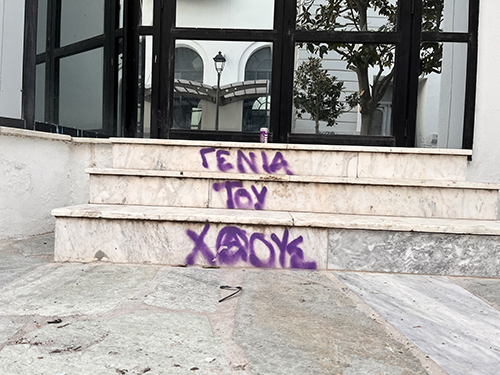 ΓΕΝΙΑ
ΤΟΥ
ΧΑΟΥΣ